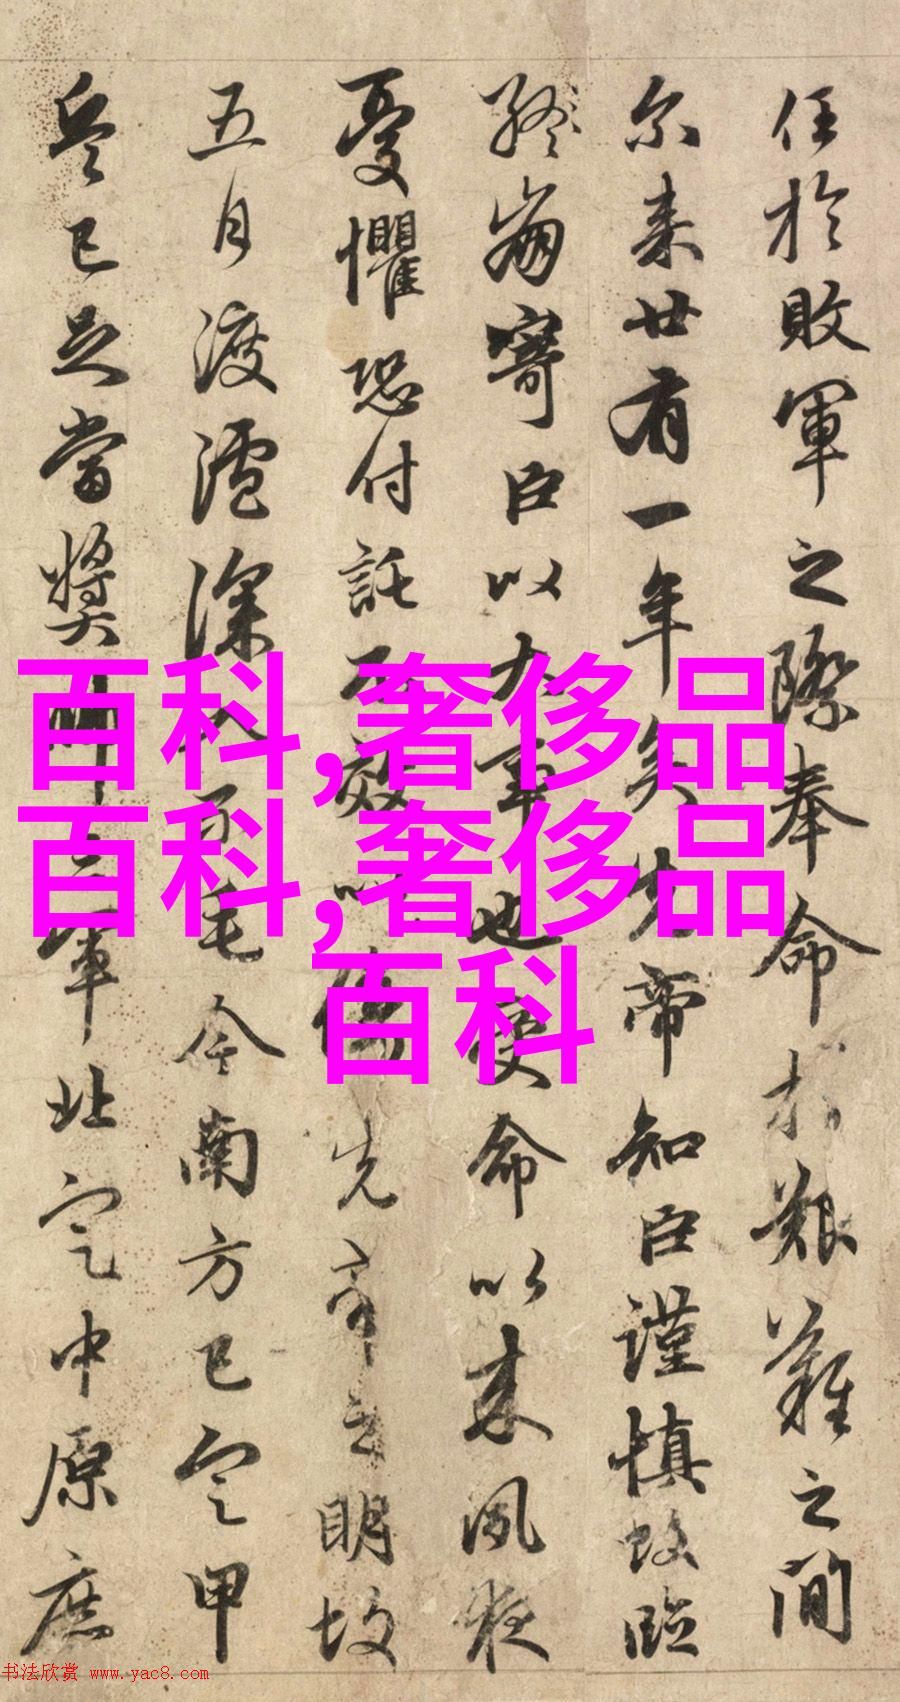 任於敗軍之際奉命於艱難之間
尔来廿有一年矣先帝知臣謹慎故臨
終崩寄臣以大事也受命以来夙夜
憂懼恐付託不效以傷先帝之明故
五月渡瀘深入不毛今南方已定甲
兵已足當獎帥三軍北定中原庶
百科,奢侈品
百科,奢侈品
百科
书法欣赏 www.yac8.com